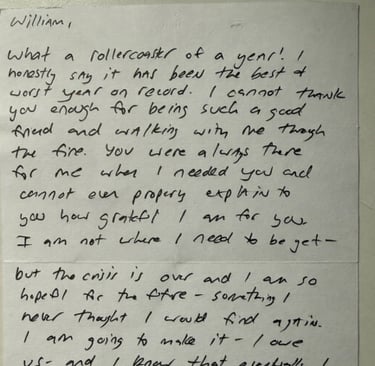 William,
What a rollercoaster of a year! I
honestly say it has been the best &
worst year on record. I cannot thank
you enough for being such a good
friend and walking with me though
the fire. You were always there
for me when I needed you and
cannot even propery explain to
you how gratefl I am for you.
I am not where I need to be yet-
but the crisis is over and I am so
hopefl for the ftre - something I
never thoght I would find again.
I am going to make it - I owe
us- and I know that eventually I